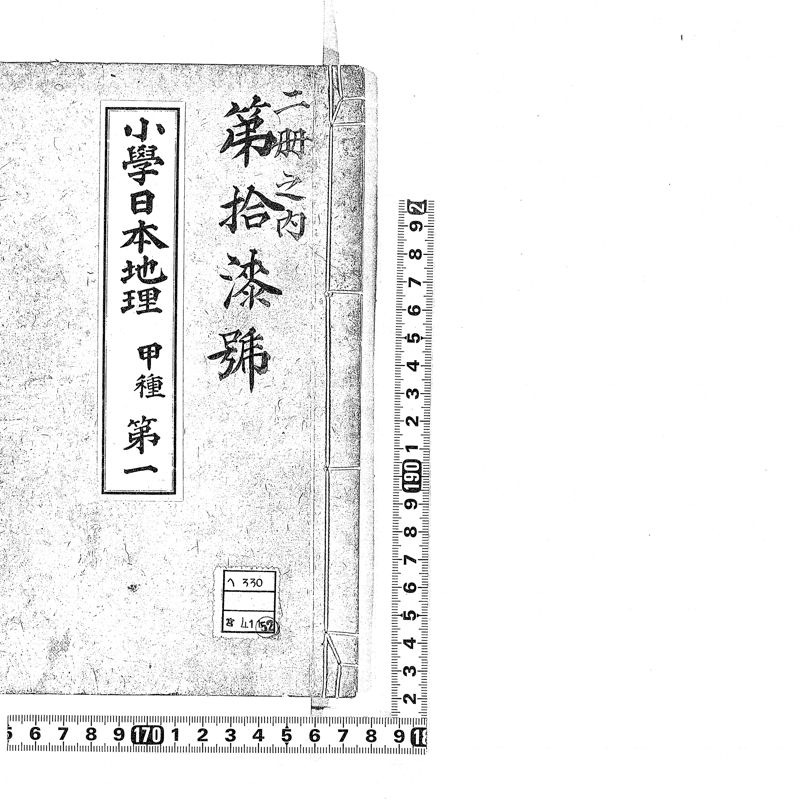 二册之内
第拾漆號
小學日本地理 甲種 第一
ヘ 330
41 152
9 8 7 6 5 4 3 2 1 190 9 8 7 6 5 4 3 2
6 7 8 9 170 1 2 3 4 5 6 7 8 9